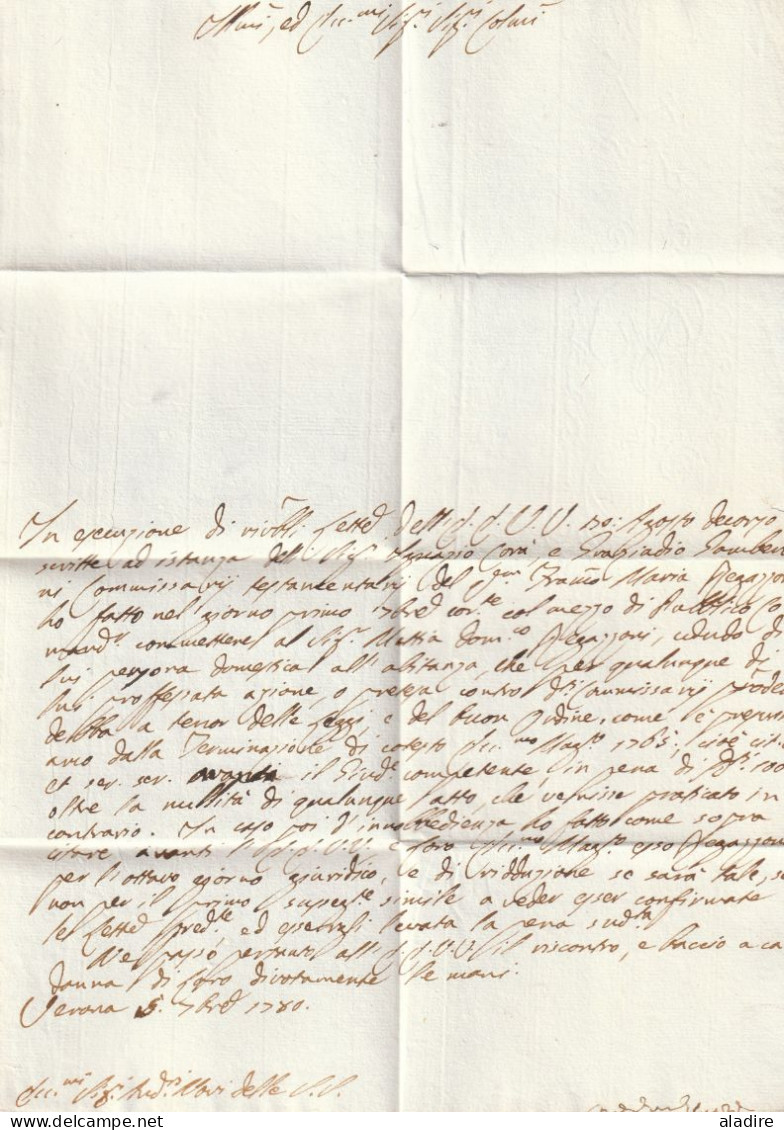 Illmi, ed Ecc.mi Sig.i Sig.i Colmi
In esecuzione di rivēbli Letted dell' J. J. V. V. 30: Agosto decorso
scritte ad istanza dell Sig. Ignazio Corà, e Graziadio Gamberi
ni Commissarij testamentarij del qm Franco Maria Regazzoni
ho fatto nel giorno primo 7bre cor.te col mezzo di Pubblico Co
mand.r commettere al Sig. Mattia Dom.co Regazzoni, cedudo di
lui persona domestica all' abitanza, che per qualunque di
lui proffessata azione, o pretesa contro dti Commissarij produr
debba a tenor delle Leggi, e del buon ordine, come è prescri
vono dalla Terminazione di cotesto Ecc.mo Magto 1765:, cioè citi
et ser. ser. avanti il Giude competente, in pena di 100
oltre la nullità di qualunque atto, che venisse praticato in
contrario. In caso poi d' innobbedienza ho fatto come sopra
citare avanti l' J. J. V. V. e loro Ecc.mo Magto esso Regazzoni
per l'ottavo giorno giuridico, e di ridduzione se sarà tale, se
non per il primo sussegte simile a veder esser confirmate
le Letted predte, ed essergli levata la pena sudta
Ne passo pertanto all' J. J. V. V. il riscontro, e baccio a ca
dauna di loro divotamente le mani.
Verona 5. 7bre 1780.
Ecc.mi Sig.i Aud.ri Novi delle S. S.